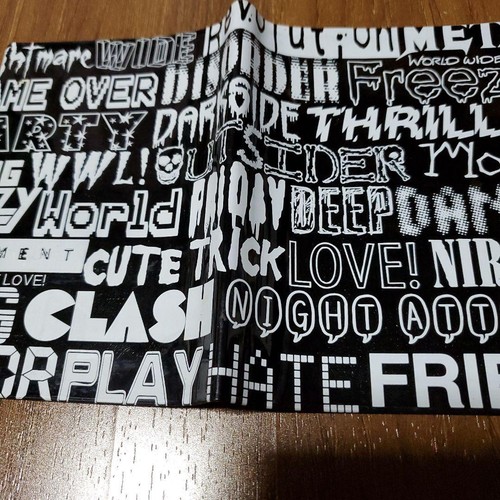 htmare WIDE Revolution MET
WORLD WIDE
AME OVER DISORDER Freez
ARTY DARKSIDE THRILL
NG WWL! OUTSIDER Mo
ZY World DEEP DAN
MENT CUTE TRICK LOVE! NIR
LOVE!
CLASH NIGHT ATT
OR PLAY HATE FRIE